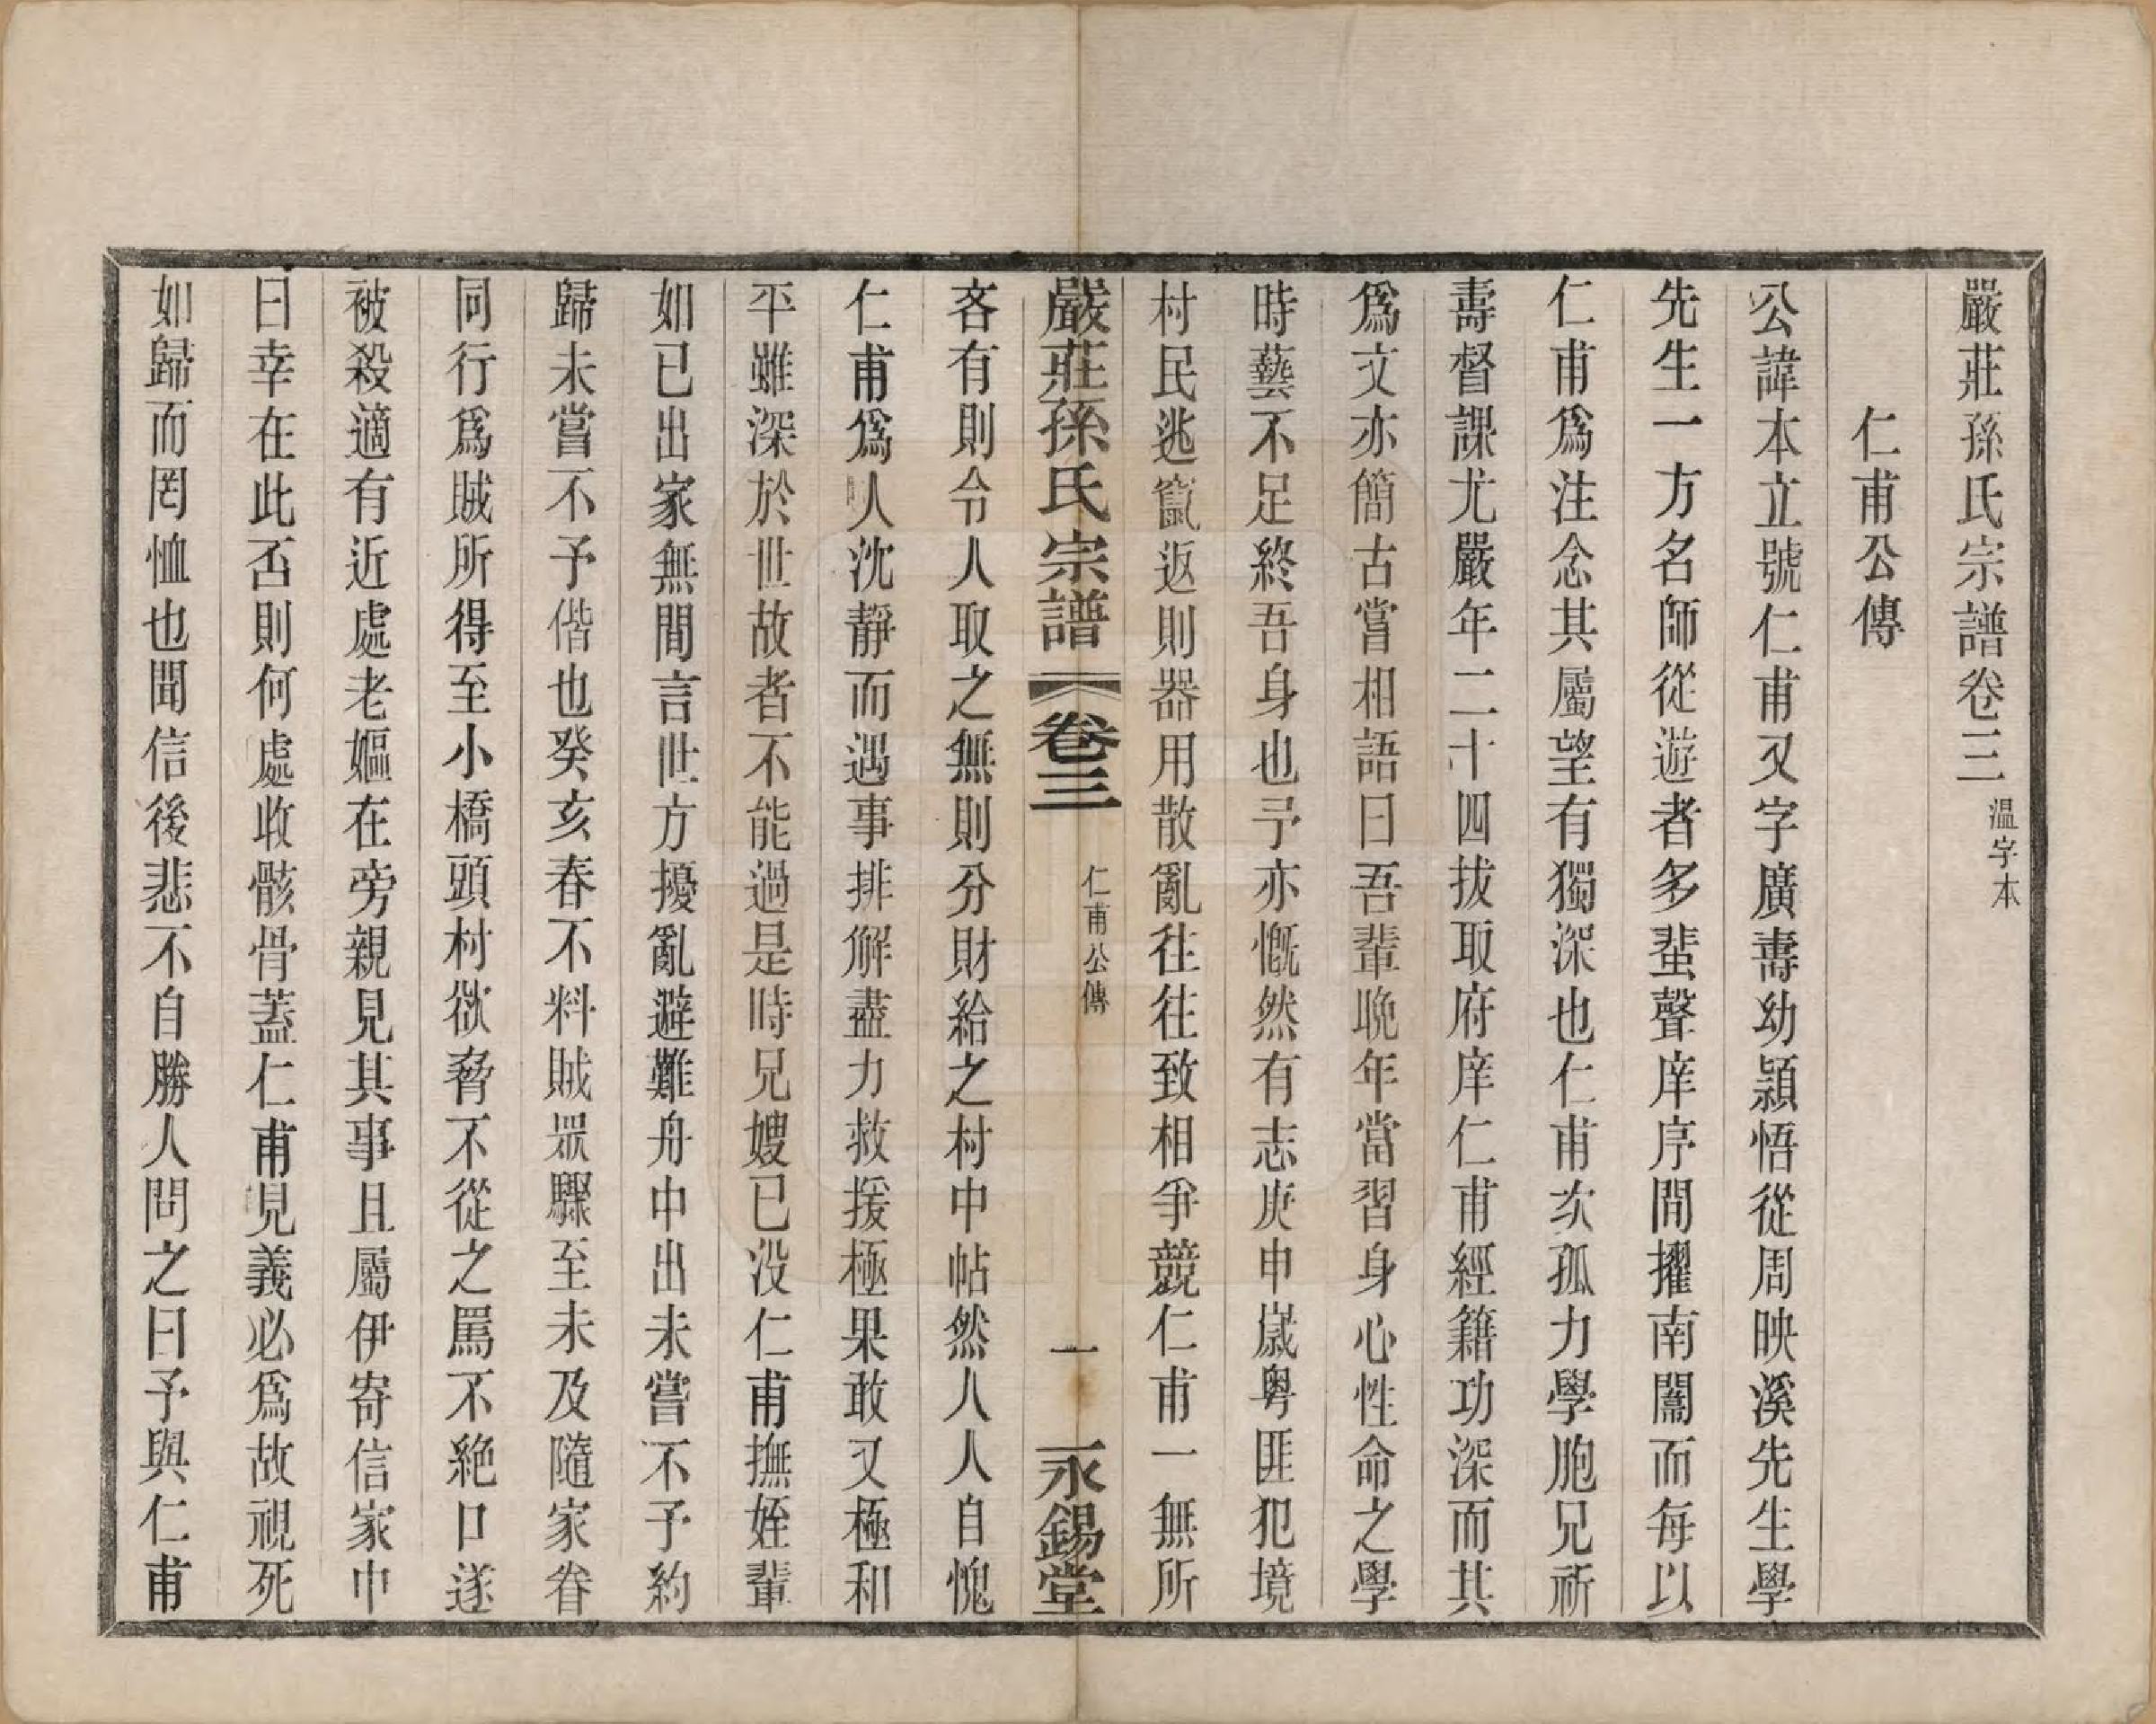 嚴莊孫氏宗譜卷三 溫字本
仁甫公傳
公諱本立號仁甫又字廣壽幼穎悟從周映溪先生學
先生一方名師從遊者多蜚聲庠序間擢南闈而每以
仁甫爲注念其屬望有獨深也仁甫次孤力學胞兄祈
壽督課尤嚴年二十四拔取府庠仁甫經籍功深而其
爲文亦簡古嘗相語曰吾輩晚年當習身心性命之學
時藝不足終吾身也予亦慨然有志庚申嵗粤匪犯境
村民逃竄返則器用散亂往往致相爭競仁甫一無所
嚴莊孫氏宗譜 卷三 仁甫公傳 一 永錫堂
吝有則令人取之無則分財給之村中帖然人人自愧
仁甫爲人沈靜而遇事排解盡力救援極果敢又極和
平雖深於世故者不能過是時兄嫂已没仁甫撫姪輩
如已出家無間言世方擾亂避難舟中出未嘗不予約
歸未嘗不予偕也癸亥春不料賊眾驟至未及隨家眷
同行爲賊所得至小橋頭村欲脅不從之罵不絶口遂
被殺適有近處老嫗在旁親見其事且屬伊寄信家中
曰幸在此否則何處收骸骨蓋仁甫見義必爲故視死
如歸而罔恤也聞信後悲不自勝人問之曰予與仁甫